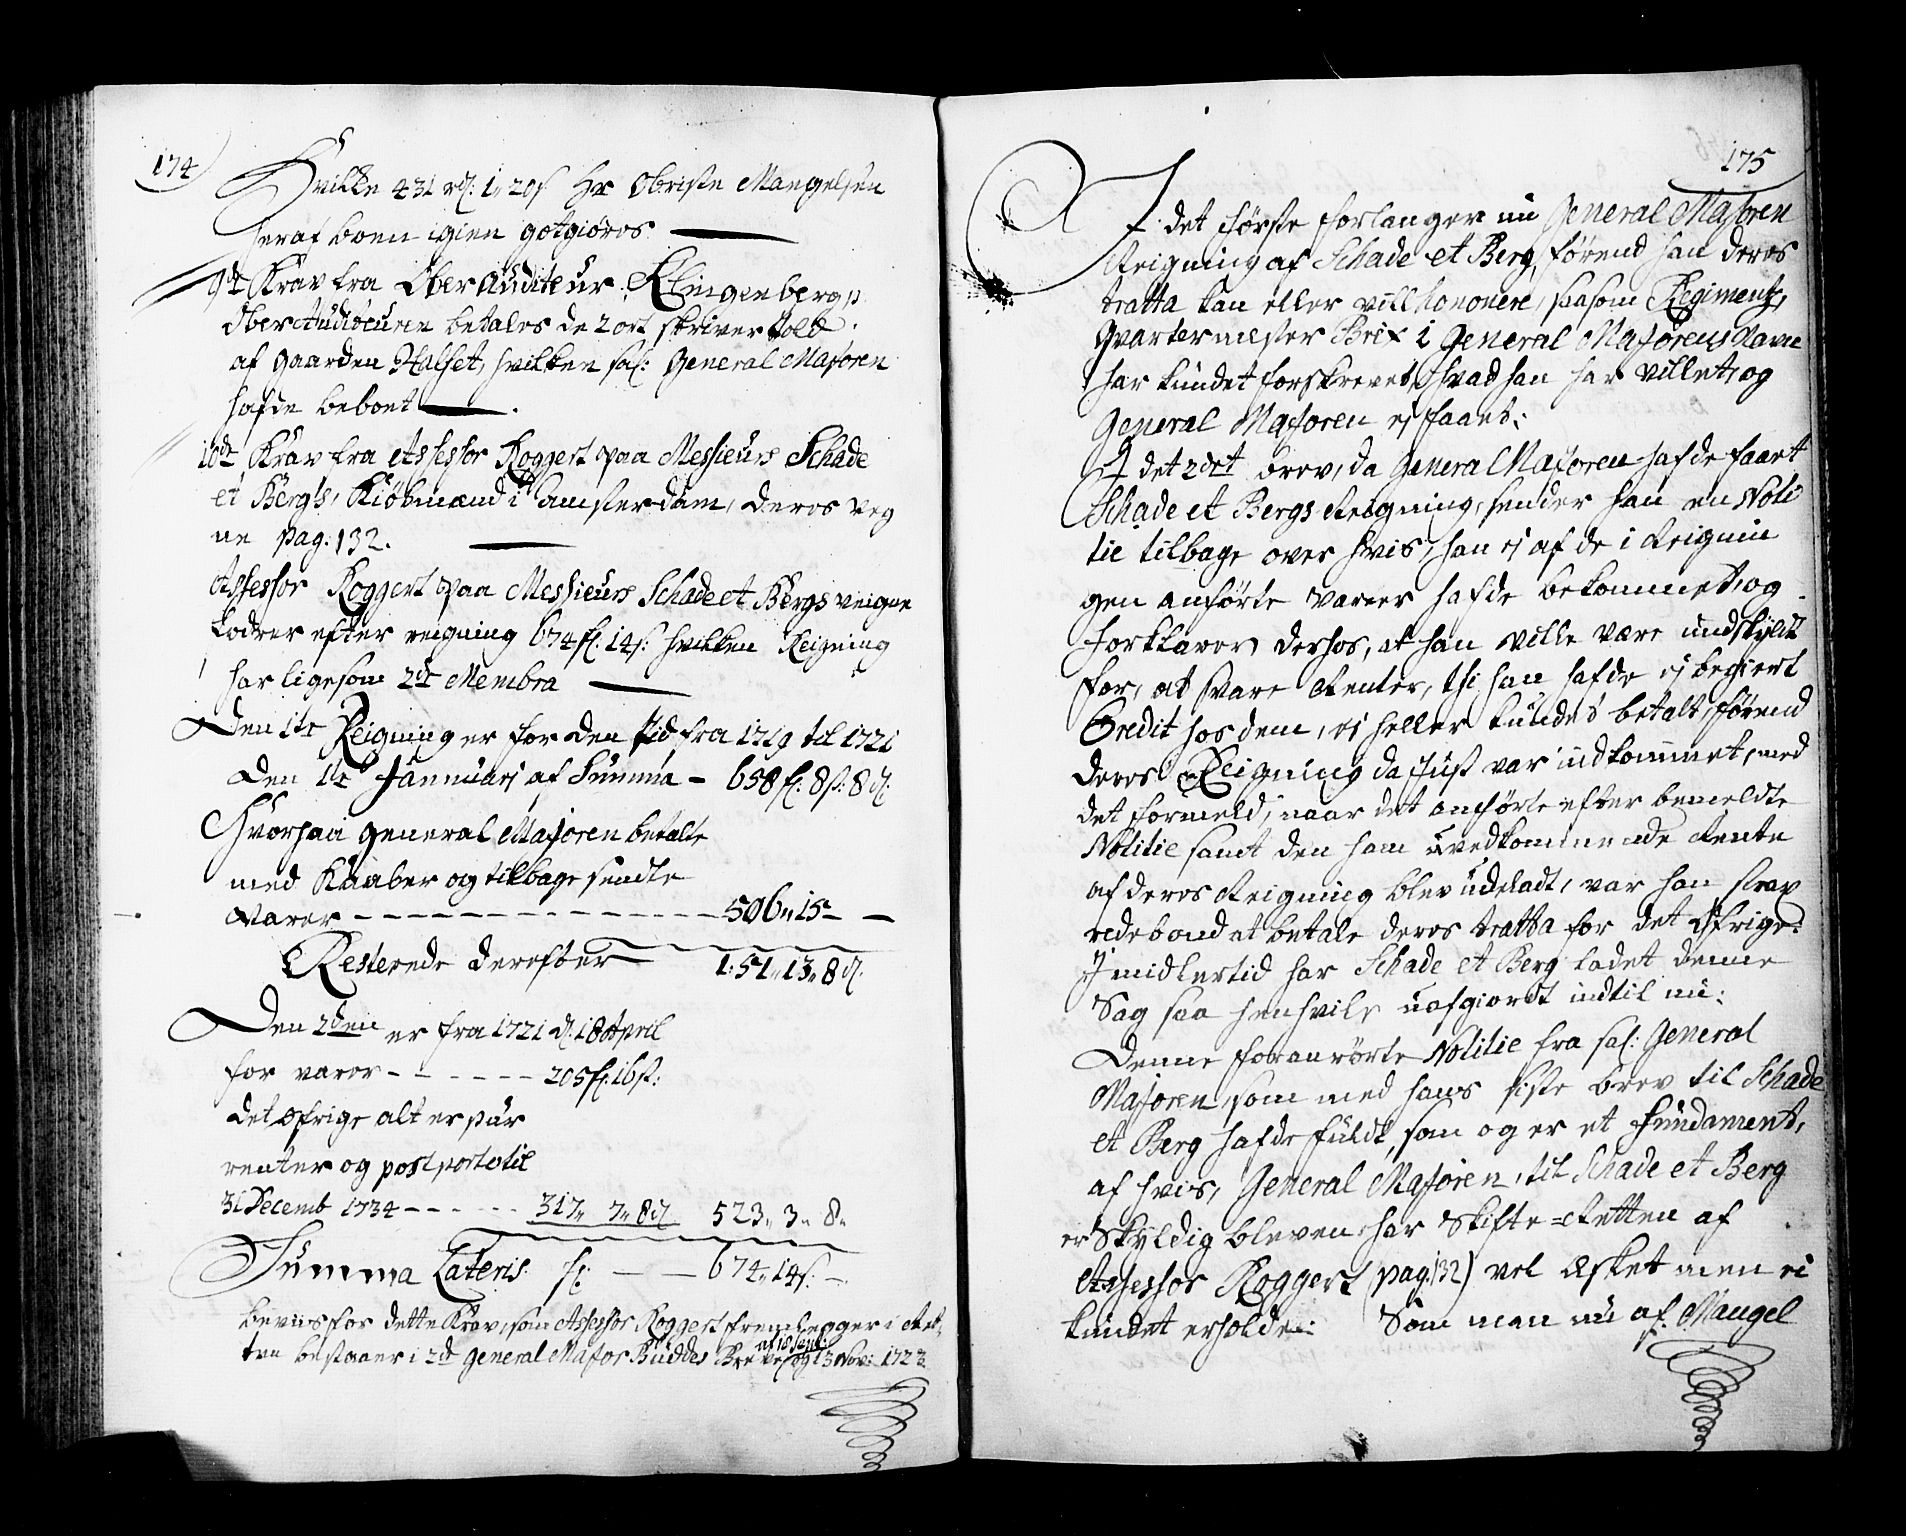 174
Hvilke 431 rd: 1„ 20 s Hr Obriste Mangelsen
heraf boen igien gotgiøres
9de Krav fra Ober Auditeur Klingenberg:
Ober Auditeuren betales de 2 ort skriver told
af gaarden Halset, hvilken sal: General Majoren
hafde beboet
10de Krav fra Assessor Roggert paa Messieurs Schade
et Bergs, Kiøbmænd i Amsterdam, deres veg
ne pag: 132.
Assessor Roggert paa Messieurs Schade et Bergs veigne
fodrer efter reigning 674 fl: 14 s: hvilken Reigning
har ligesom 2de Membra
Den 1te Reigning er for den tid fra 1719 til 1721
den 1te Januarj af Summa - 658 fl: 8 st: 8 d:
Hvorpaa General Majoren betalte
med Kaaber og tilbage sendte
Varer - - - 506„ 15 - -
Resterede derefter 151„ 13„ 8 d.
Den 2den er fra 1721 d: 18 April
for varer - - - 205 fl: 16 st:
det øfrige alt er pur
renter og post porto til
31 Decemb 1734 - - - 317„ 7„ 8 d 523„ 3„ 8„
Summa Lateris fl: - - 674„ 14 s: -
beviis for dette Krav, som Assessor Roggert fremlegger i Ret-
ten bestaaer i 2de General Major Buddes Breve af 18 Sept: og 13 Nov: 1723
175
I det første forlanger nu General Majoren
Reigning af Schade et Berg, førend han deres
tratta kan eller vill honorere, saasom Regiments,
Qvartermester Brix i General Majorens Navn
har kundet forskrevet, hvad han har villet, og
General Majoren ej faaet:
I det 2det brev, da General Majoren hafde faaet
Schade et Bergs Reigning, sender han en Noti
tie tilbage over hvis, han ej af de i Reignin
gen anførte varer hafde bekommet, og
forklarer derhos, at han ville være undskyldt
for, at svare Renter, thi han hafde ej begiert
Credit hos dem, ej heller kundes betalt, førend
deres Reigning da just var indkommet, med
det formeld, naar det anførte efter bemeldte
Notitie samt den ham uvedkommende Rente
af deres Reigning blev udeladt, var han strax
redebond at betale deres tratta for det øfrige:
Imidlertid har Schade et Berg ladet denne
Sag saa henhvile uafgiordt indtil nu:
Denne foranrørte Notitie fra sal: General
Majoren, som med hans siste brev til Schade
et Berg hafde fuldt, som og er et Fundament,
af hvis, General Majoren, til Schade et Berg
er Skyldig bleven har Skifte=Retten af
Assessor Roggert (pag: 132) vel æsket men ei
kundet erholde: Som man nu af Mangel